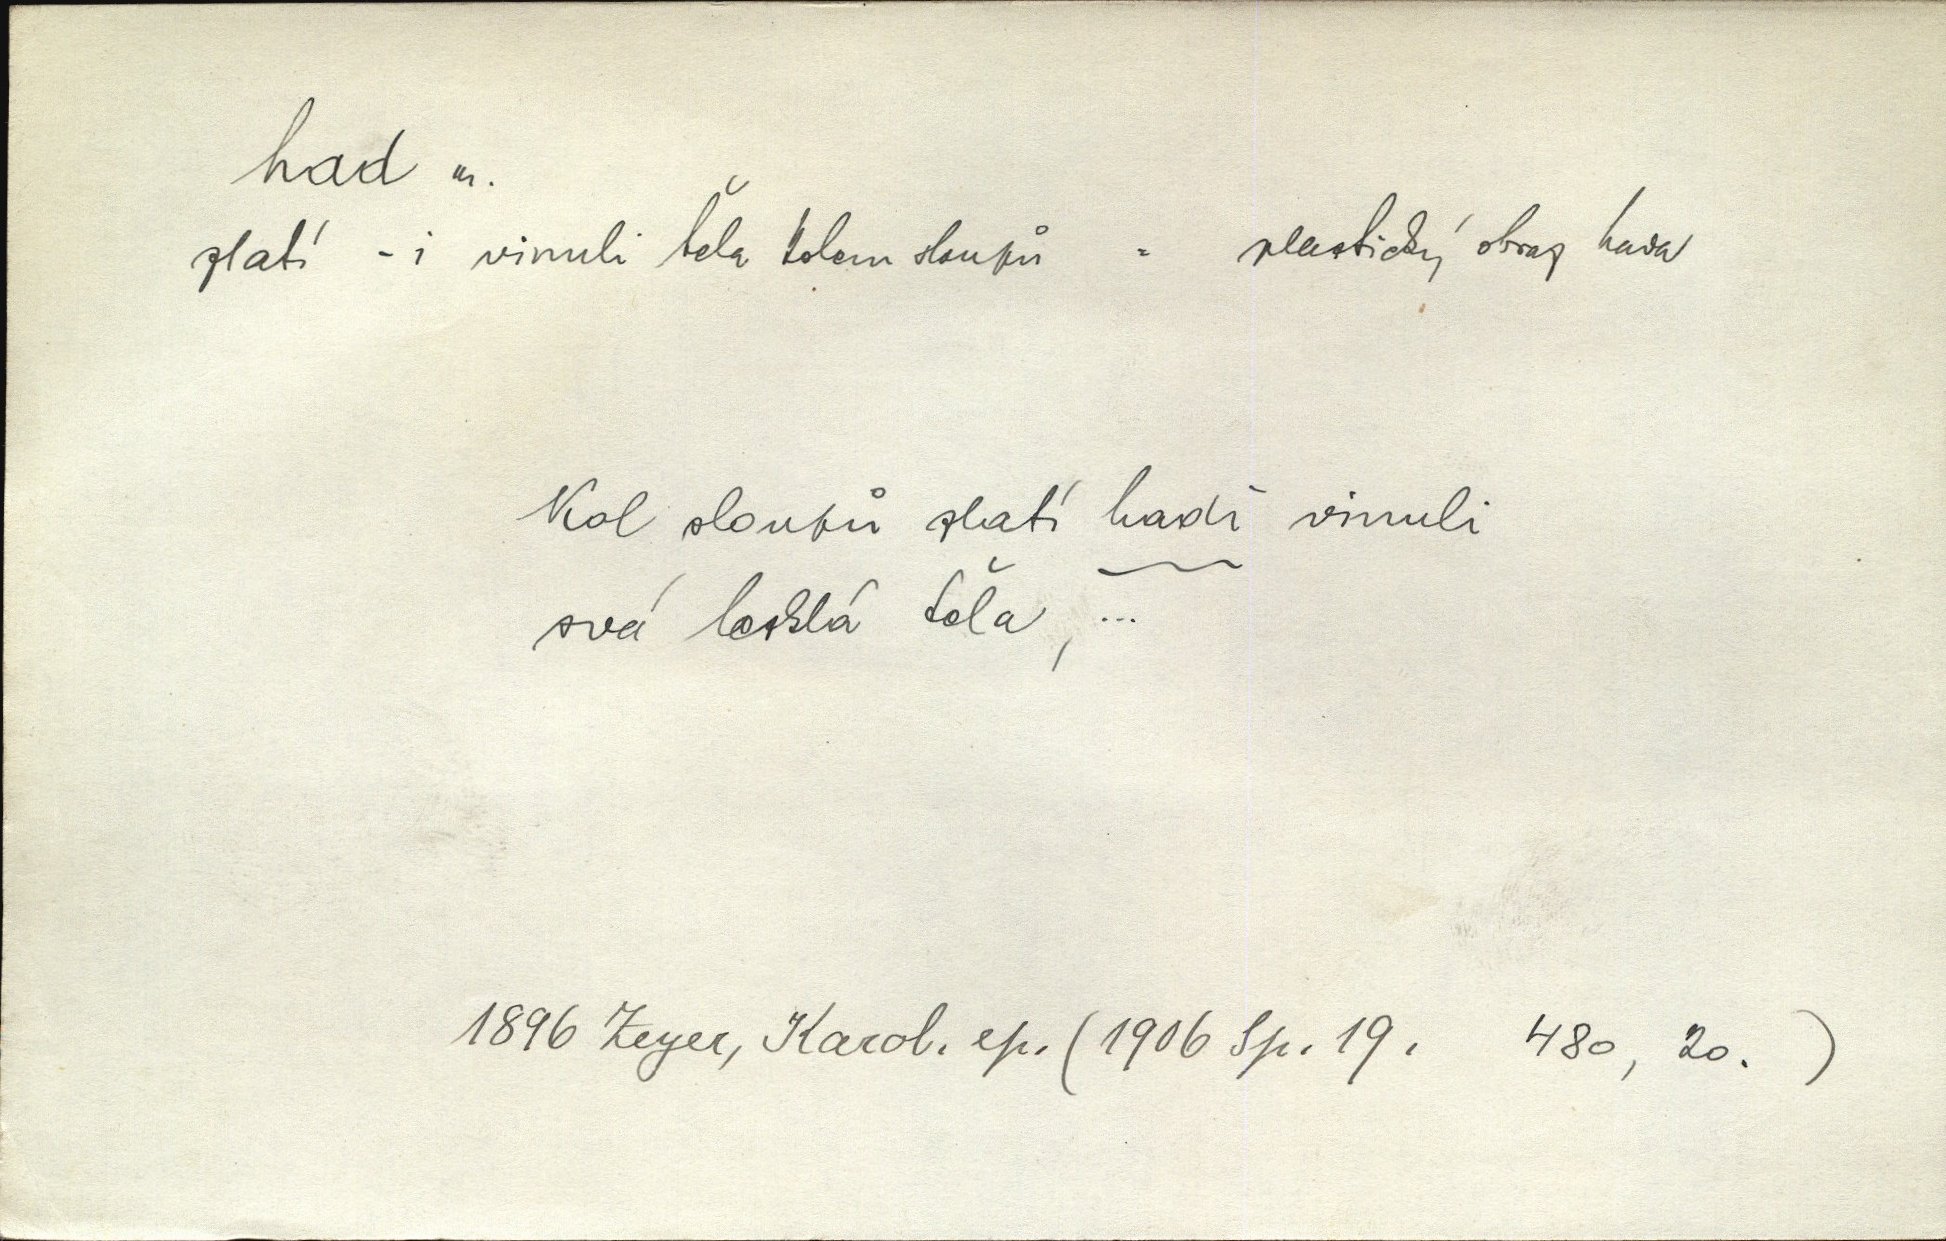 had m.
zlatí - i vinuli těla kolem sloupů = plastický obraz hada
Kol sloupů zlatí hadi vinuli
svá lesklá těla, ...
1896 Zeyer, Karol. ep. (1906 Sp. 19. 480, 20. )